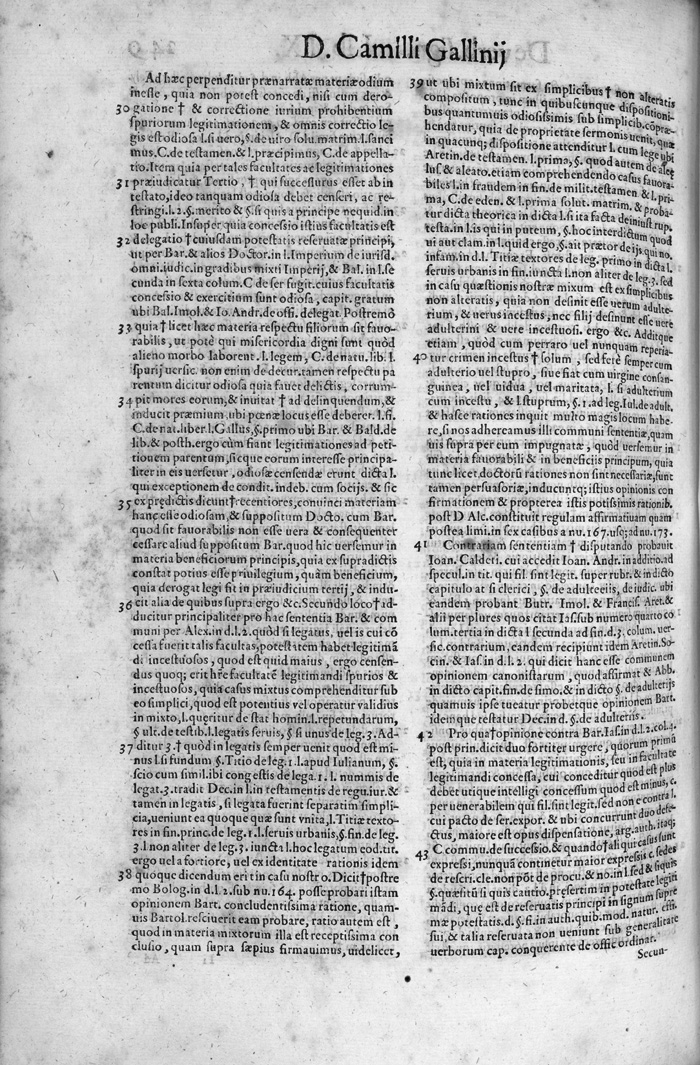 D. Camilli Gallinij
Ad hæc perpenditur prænarratæ materiæ odium
inesse, quia non potest concedi, nisi cum dero-
30 gatione † & correctione iurium prohibentium
spuriorum legitimationem, & omnis correctio le-
gis est odiosa l. si uero, §. de uiro solu. matrim. l. sanci
mus. C. de testamen. & l. præcipimus, C. de appella-
tio. Item quia per tales facultates ac legitimationes
31 præiudicatur Tertio, † qui successurus esset ab in
testato, ideo tanquam odiosa debet censeri, ac re-
stringi. l. 2. §. merito & §. si quis a principe ne quid. in
loc. publi. Insuper quia concessio istius facultatis est
32 delegatio † cuiusdam potestatis reseruatæ principi,
ut per Bar. & alios Doctor. in l. Imperium de iurisd.
omni. iudic. in gradibus mixti Imperij, & Bal. in l. se
cunda in sexta colum. C. de ser. fugit. cuius facultatis
concessio & exercitium sunt odiosa, capit. gratum
ubi Bal. Imol. & Io. Andr. de offi. delegat. Postremò
33 quia † licet hæc materia respectu filiorum sit fauo-
rabilis, ut potè qui misericordia digni sunt quòd
alieno morbo laborent. l. legem, C. de natu. lib. l.
spurij uersic. non enim de decur. tamen respectu pa
rentum dicitur odiosa quia fauet delictis, corrum-
34 pit mores eorum, & inuitat † ad delinquendum, &
inducit præmium, ubi pœnæ locus esse deberet. l. si.
C. de nat. liber. l. Gallus, §. primo ubi Bar. & Bald. de
lib. & posth. ergo cùm fiant legitimationes ad peti-
tionem parentum, sicque eorum interesse principa-
liter in eis uersetur, odiosæ censendæ erunt dicta l.
qui exceptionem de condit. indeb. cum socijs. & sic
35 ex prędictis dicunt † recentiores, conuinci materiam
hanc esse odiosam, & suppositum Docto. cum Bar.
quod sit fauorabilis non esse uera & consequenter
cessare aliud suppositum Bar. quod hic uersemur in
materia beneficiorum principis, quia ex supradictis
constat potius esse priuilegium, quàm beneficium,
quia derogat legi sit in præiudicium tertij, & indu-
36 cit alia de quibus supra ergo &c. Secundo loco † ad-
ducitur principaliter pro hac sententia Bar. & com
muni per Alex. in d. l. 2. quòd si legatus, uel is cui cō
cessa fuerit talis facultas, potestatem habet legitimā
di incestuosos, quod est quid maius, ergo censen-
dus quoq; erit hr̃e facultatē legitimandi spurios &
incestuosos, quia casus mixtus comprehenditur sub
eo simplici, quod est potentius uel operatur validius
in mixto, l. quęritur de stat homin. l. repetundarum,
§ ult. de testib. l. legatis seruis, § si unus de leg. 3. Ad-
37 ditur 3. † quòd in legatis semper uenit quod est mi-
nus l. si fundum §. Titio de leg. 1. l. apud Iulianum, §.
scio cum simil. ibi congestis de lega. 1. l. nummis de
legat. 3. tradit Dec. in l. in testamentis de regu. iur. &
tamen in legatis, si legata fuerint separatim simpli-
cia, ueniunt ea quoque quæ sunt vnita, l. Titiæ texto-
res in fin. princ. de leg. 1. l. seruis urbanis, §. fin. de leg.
3. l. non aliter de leg. 3. iuncta l. hoc legatum eod. tit.
ergo uel a fortiore, uel ex identitate rationis idem
38 quoque dicendum erit in casu nostro. Dicit † postre
mo Bolog. in d. l. 2. sub nu. 164. posse probari istam
opinionem Bart. concludentissima ratione, quam-
uis Bartol. resciuerit eam probare, ratio autem est,
quod in materia mixtorum illa est receptissima con
clusio, quam supra sæpius firmauimus, uidelicet,
39 ut ubi mixtum sit ex simplicibus † non alteratis
compositum, tunc in quibuscunque dispositioni-
bus quantumuis odiosissimis sub simplicib. cōpræ-
hendatur, quia de proprietate sermonis uenit, quæ
in quacunq; dispositione attenditur l. cum lege ubi
Aretin. de testamen. l. prima, §. quod autem de alet
lus. & aleato. etiam comprehendendo casus fauora-
biles l. in fraudem in fin. de milit. testamen & l. pri-
ma, C. de eden. & l. prima solut. matrim. & proba-
tur dicta theorica in dicta l. si ita facta de iniust. rup.
testa. in l. is qui in puteum, §. hoc interdictum quod
ui aut clam. in l. quid ergo, §. ait prætor de ijs qui no.
infam. in d. l. Titiæ textores de leg. primo in dicta l.
seruis urbanis in fin. iuncta l. non aliter de leg. 3. sed
in casu quæstionis nostræ mixum est ex simplicibus
non alteratis, quia non desinit esse uerum adulte-
rium, & uerus incestus, nec filij desinunt esse uere
adulterini & uere incestuosi. ergo &c. Additque
etiam, quòd cum perraro uel nunquam reperia-
40 tur crimen incestus † solum, sed ferè semper cum
adulterio uel stupro, siue fiat cum uirgine consan-
guinea, uel uidua, uel maritata, l. si adulterium
cum incestu, & l. stuprum, §. 1. ad leg. Iul. de adult.
& hasce rationes inquit multo magis locum habe-
re, si nos adhereamus illi communi sententiæ, quam
uis supra per eum impugnatæ, quòd uersemur in
materia fauorabili & in beneficiis principum, quia
tunc licet doctorū rationes non sint necessariæ, sunt
tamen persuasoriæ, inducuntq; istius opinionis con
firmationem & propterea istis potissimis rationib.
post D. Alc. constituit regulam affirmatiuam quam
postea limi. in sex casibus a nu. 167. usq; ad nu. 173.
41 Contrariam sententiam † disputando probauit
Ioan. Calderi. cui accedit Ioan. Andr. in additio. ad
specul. in tit. qui fil. sint legit. super rubr. & in dicto
capitulo at si clerici, §. de adulteriis, de iudic. ubi
eandem probant Butr. Imol. & Francis. Aret. &
alii per plures quos citat Ias. sub numero quarto co
lum. tertia in dicta l. secunda ad fin. d. 3. colum. uer-
sic. contrarium, eandem recipiunt idem Aretin. So-
cin. & Ias. in d. l. 2. qui dicit hanc esse communem
opinionem canonistarum, quod affirmat & Abb.
in dicto capit. fin. de simo. & in dicto §. de adulterijs
quamuis ipse tueatur probetque opinionem Bart.
idemque testatur Dec. in d. §. de adulteriis.
42 Pro qua † opinione contra Bar. Ias. in d. l. 2. col. 4.
post prin. dicit duo fortiter urgere, quorum primū
est, quia in materia legitimationis, seu in facultate
legitimandi concessa, cui conceditur quod est plus
debet utique intelligi concessum quod est minus, c.
per uenerabilem qui fil. sint legit. sed non e contra l.
cui pacto de ser. expor. & ubi concurrunt duo defe-
ctus, maior est opus dispensatione, arg. auth. itaq;
43 C. commu. de successio. & quando † ali qui casus sunt
expressi, nunquā continetur maior expressis c. sedes
de rescri. cle. non pōt de procu. & no. in l. sed & si quis
§. quæsitū si quis cautio. presertim in potestate legiti
mādi, que est de reseruatis principi in signum supre
mæ potestatis. d. §. fi. in auth. quib. mod. natur. effi.
sui, & talia reseruata non ueniunt sub generalitate
uerborum cap. conquerente de offic ordinar.
Secun-